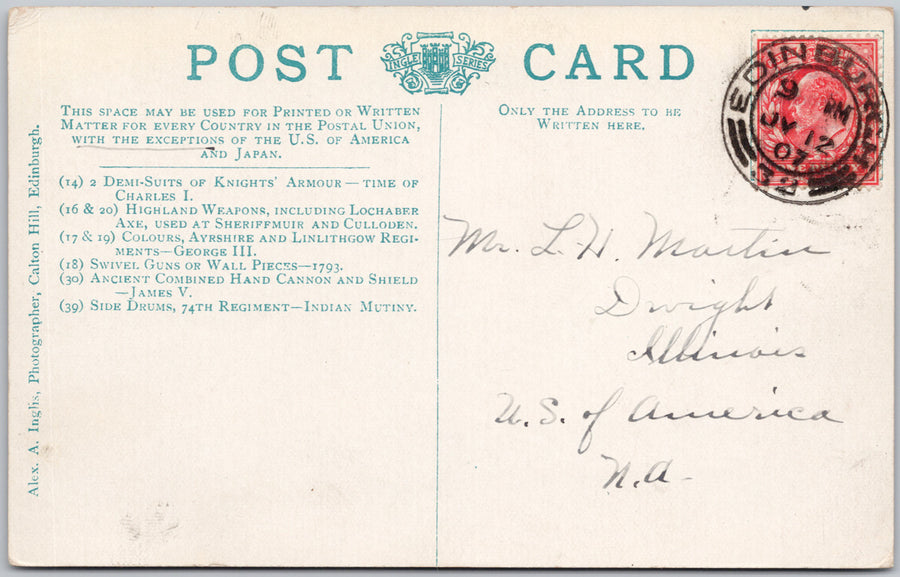 POST CARD
INGLE SERIES
THIS SPACE MAY BE USED FOR PRINTED OR WRITTEN
MATTER FOR EVERY COUNTRY IN THE POSTAL UNION,
WITH THE EXCEPTIONS OF THE U.S. OF AMERICA
AND JAPAN.
(14) 2 DEMI-SUITS OF KNIGHTS' ARMOUR—TIME OF
CHARLES I.
(16 & 20) HIGHLAND WEAPONS, INCLUDING LOCHABER
AXE, USED AT SHERIFFMUIR AND CULLODEN.
(17 & 19) COLOURS, AYRSHIRE AND LINLITHGOW REGI-
MENTS—GEORGE III.
(18) SWIVEL GUNS OR WALL PIECES—1793.
(30) ANCIENT COMBINED HAND CANNON AND SHIELD
—JAMES V.
(39) SIDE DRUMS, 74TH REGIMENT—INDIAN MUTINY.
Alex. A. Inglis, Photographer, Calton Hill, Edinburgh.
ONLY THE ADDRESS TO BE
WRITTEN HERE.
EDINBURGH
9 PM
JY 12
07
Mr. L. H. Martin
Dwight
Illinois
U.S. of America
N.A-